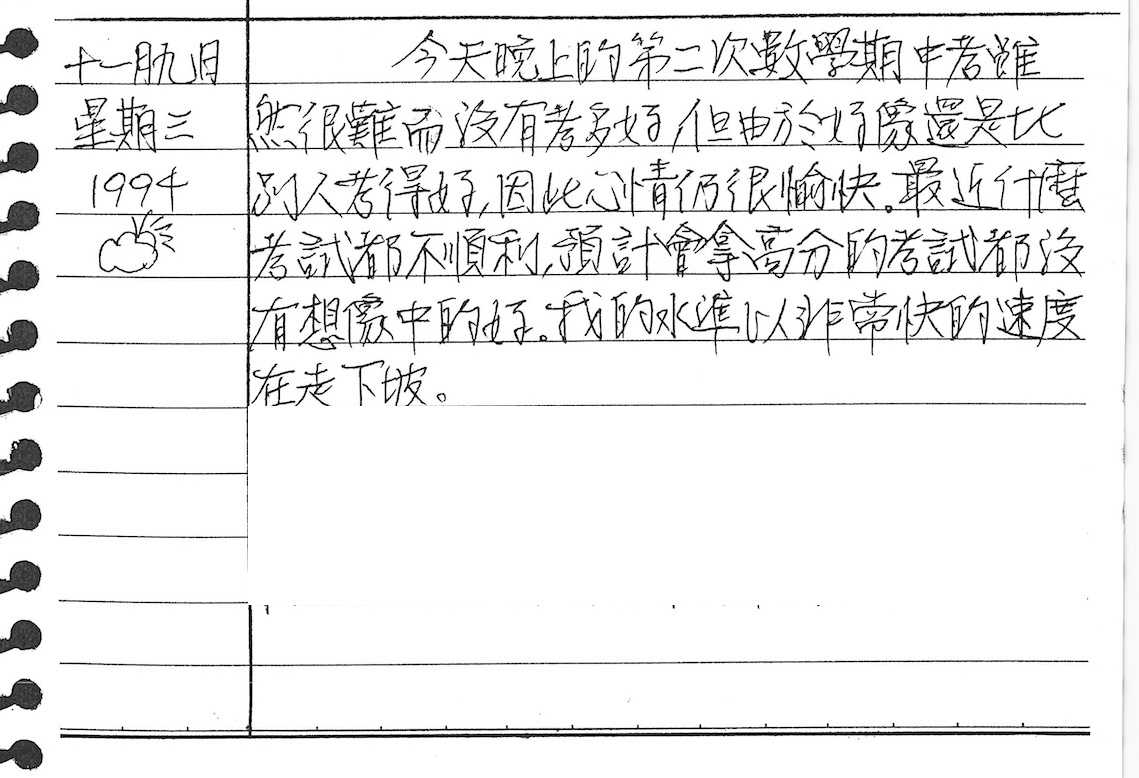 十一月九日
星期三
1994
今天晚上的第二次數學期中考雖
然很難而沒有考多好,但由於好像還是比
別人考得好,因此心情仍很愉快。最近什麼
考試都不順利,預計會拿高分的考試都沒
有想像中的好。我的水準以非常快的速度
在走下坡。